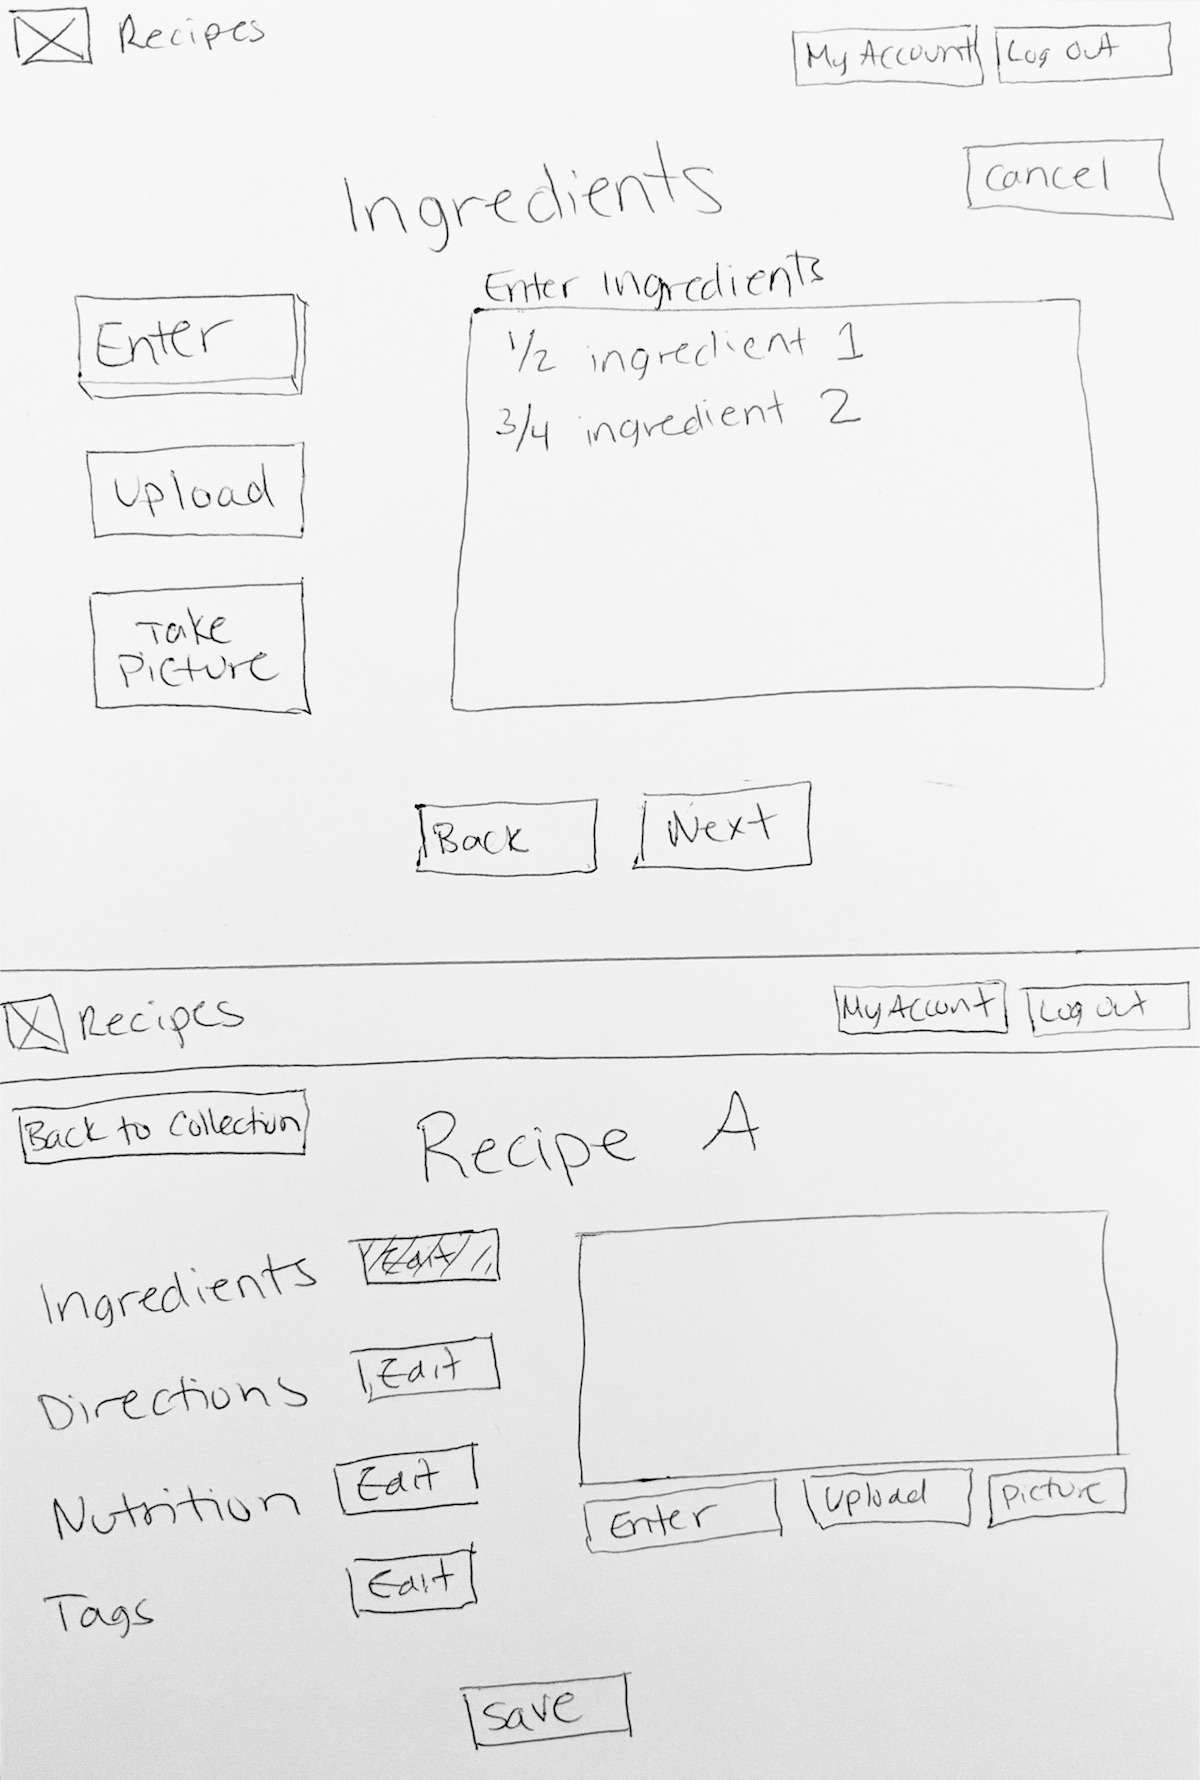 Recipes
My Account
Log Out
Cancel
Ingredients
Enter Ingredients
1/2 ingredient 1
3/4 ingredient 2
Enter
Upload
Take
Picture
Back
Next
Recipes
My Account
Log Out
Back to Collection
Recipe A
Ingredients
Edit
Directions
Edit
Nutrition
Edit
Tags
Edit
Enter
Upload
Picture
Save